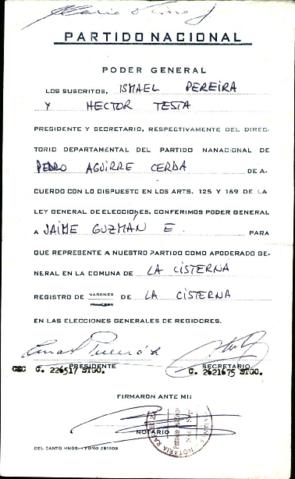 PARTIDO NACIONAL
PODER GENERAL
LOS SUSCRITOS, ISMAEL PEREIRA
Y HECTOR TESTA
PRESIDENTE Y SECRETARIO, RESPECTIVAMENTE DEL DIREC-
TORIO DEPARTAMENTAL DEL PARTIDO NANACIONAL DE
PEDRO AGUIRRE CERDA DE A-
CUERDO CON LO DISPUESTO EN LOS ARTS. 125 Y 169 DE LA
LEY GENERAL DE ELECCIONES, CONFERIMOS PODER GENERAL
A JAIME GUZMÁN E. PARA
QUE REPRESENTE A NUESTRO PARTIDO COMO APODERADO GE-
NERAL EN LA COMUNA DE LA CISTERNA
REGISTRO DE VARONES LA CISTERNA
EN LAS ELECCIONES GENERALES DE REGIDORES.
PRESIDENTE SECRETARIO
C. 226517 STGO. C. 2621675 STGO.
FIRMARON ANTE MI:
NOTARIO